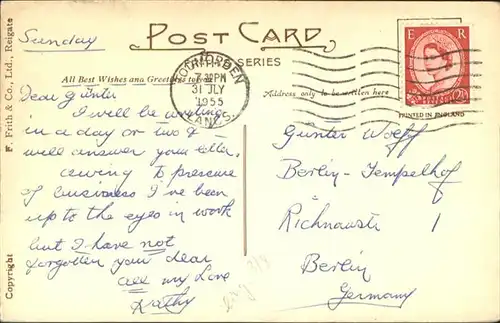 Sunday
POST CARD
SERIES
All Best Wishes and Greetings to
Dear Günter
I will be writing
in a day or two &
will answer your letter,
owing to pressure
of business I've been
up to the eyes in work
but I have not
forgotten you dear
all my love
Kathy
7 30 PM
31 JLY
1955
LANCS.
Address only to be written here
E R
PRINTED IN ENGLAND
Günter Wolff
Berlin-Tempelhof
Richnowstr 1
Berlin
Germany
F. Frith & Co., Ltd., Reigate
Copyright